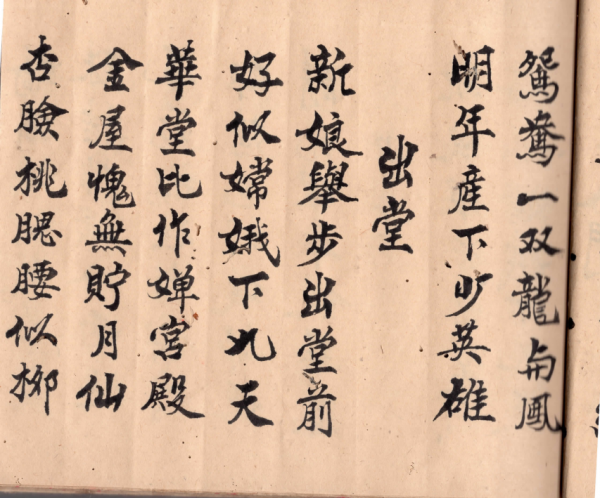 鴛鴦一双龍与鳳
明年產下少英雄
出堂
新娘舉步出堂前
好似嫦娥下九天
華堂比作嬋宮殿
金屋愧無貯月仙
杏臉桃腮腰似柳